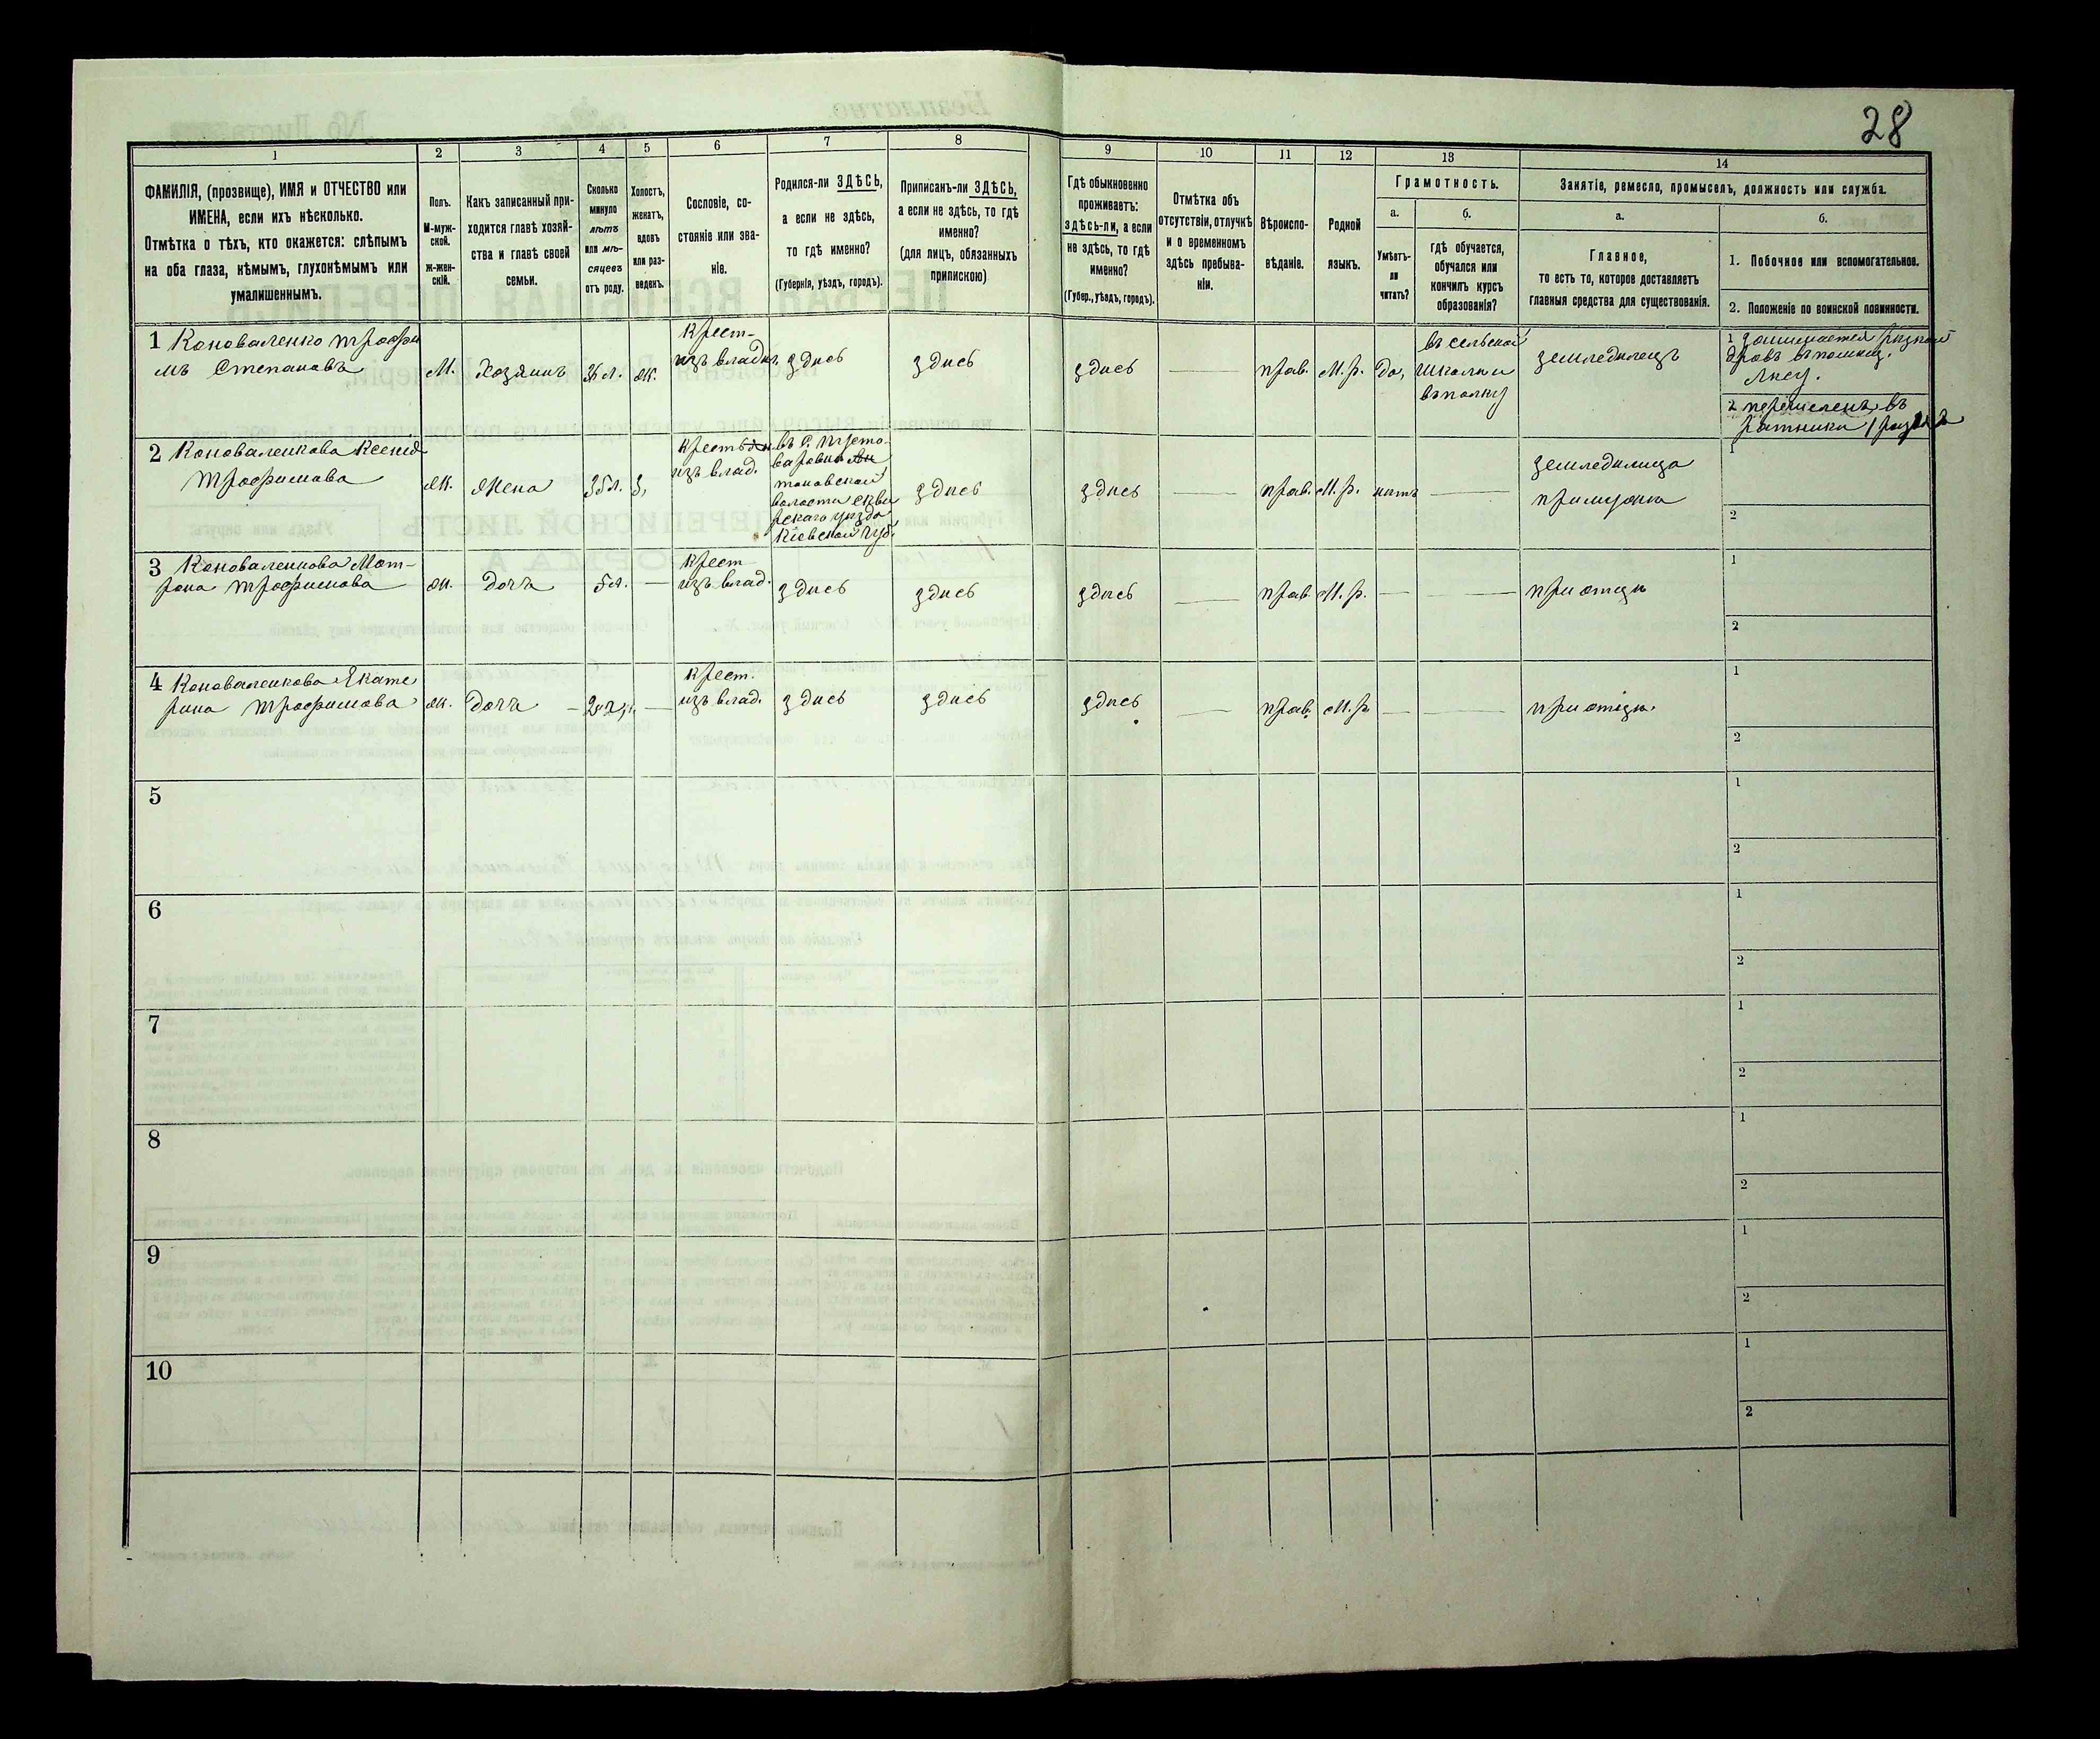 28
1
2
3
4
5
6
7
8
9
10
11
12
13
14
ФАМИЛІЯ, (прозвище), ИМЯ и ОТЧЕСТВО или
ИМЕНА, если ихъ нѣсколько.
Отмѣтка о тѣхъ, кто окажется: слѣпымъ
на оба глаза, нѣмымъ, глухонѣмымъ или
умалишеннымъ.
Полъ.
М-муж-
ской.
ж-жен-
скій.
Какъ записанный при-
ходится главѣ хозяй-
ства и главѣ своей
семьи.
Сколько
минуло
лѣтъ
или мѣ-
сяцевъ
отъ роду.
Холостъ,
женатъ,
вдовъ
или раз-
веденъ.
Сословіе, со-
стояніе или зва-
ніе.
Родился-ли ЗДѢСЬ,
а если не здѣсь,
то гдѣ именно?
(Губернія, уѣздъ, городъ).
Приписанъ-ли ЗДѢСЬ,
а если не здѣсь, то гдѣ
именно?
(для лицъ, обязанныхъ
припискою)
Гдѣ обыкновенно
проживаетъ:
здѣсь-ли, а если
не здѣсь, то гдѣ
именно?
(Губер., уѣздъ, городъ).
Отмѣтка объ
отсутствіи, отлучкѣ
и о временномъ
здѣсь пребыва-
ніи.
Вѣроиспо-
вѣданіе.
Родной
языкъ.
Грамотность.
а.
Умѣетъ-
ли
читать?
б.
гдѣ обучается,
обучался или
кончилъ курсъ
образованія?
Занятіе, ремесло, промыселъ, должность или служба.
а.
Главное,
то есть то, которое доставляетъ
главныя средства для существованія.
б.
1. Побочное или вспомогательное.
2. Положеніе по воинской повинности.
1 Коноваленко Трофи
мъ Степановъ
М.
Хозяинъ
ж.
Крест-
изъ влад.
здѣсь
здѣсь
здѣсь
прав.
М. р.
да,
въ сельской
школѣ и
въ полку
земледѣлецъ
1 занимается рѣзкой
дровъ въ помѣщ.
лѣсу.
2 перечисленъ въ
ратники 1 разряда
2 Коноваленкова Ксенія
Трофимова
ж.
жена
35 л.
з,
Крест
изъ влад.
въ с.
волости Сквир
скаго уѣзда
Кіевской губ.
здѣсь
здѣсь
прав.
М. р.
нѣтъ
земледѣлица
при мужѣ
1
2
3 Коноваленкова Мот-
рона Трофимова
ж.
дочь
5 л.
Крест
изъ влад.
здѣсь
здѣсь
здѣсь
прав
М. р.
при отцѣ
1
2
4 Коноваленкова Екате
рина Трофимова
ж.
дочь
Крест.
изъ влад.
здѣсь
здѣсь
здѣсь
прав.
М. р
при отцѣ.
1
2
5
1
2
6
1
2
7
1
2
8
1
2
9
1
2
10
1
2